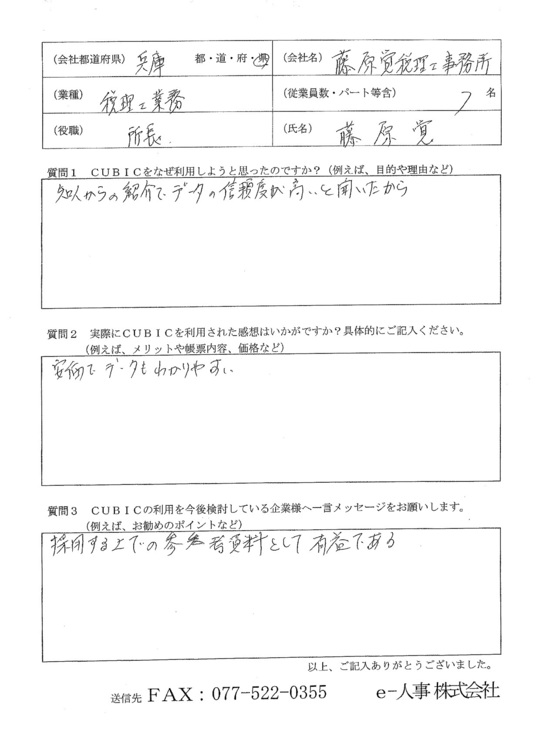 (会社都道府県) 兵庫 都・道・府・県
(会社名) 藤原覚税理士事務所
(業種) 税理士業務
(従業員数・パート等含) 7 名
(役職) 所長
(氏名) 藤原 覚
質問1 CUBICをなぜ利用しようと思ったのですか?(例えば、目的や理由など)
知人からの紹介でデータの信頼度が高いと聞いたから
質問2 実際にCUBICを利用された感想はいかがですか?具体的にご記入ください。
(例えば、メリットや帳票内容、価格など)
安価でデータもわかりやすい
質問3 CUBICの利用を今後検討している企業様へ一言メッセージをお願いします。
(例えば、お勧めのポイントなど)
採用する上での参考資料として有益である
以上、ご記入ありがとうございました。
送信先 FAX:077-522-0355 e-人事株式会社